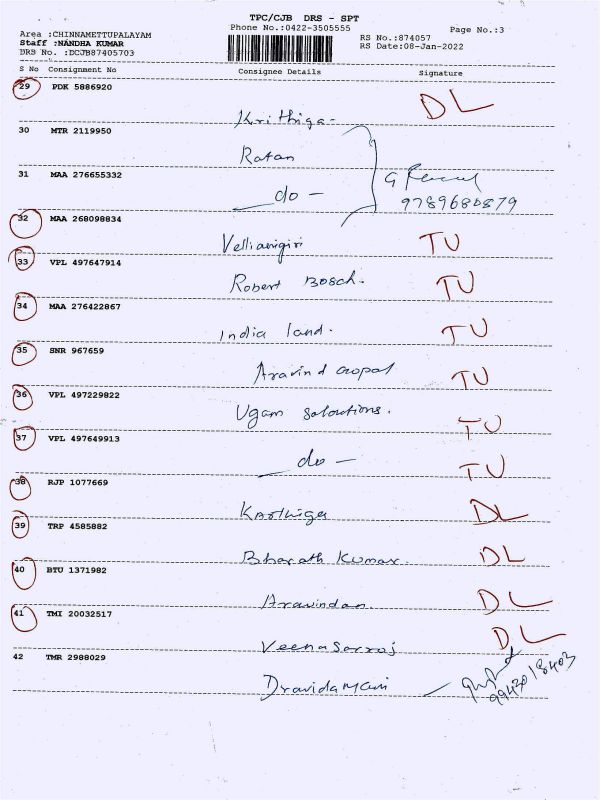 TPC/CJB DRS - SPT
Area :CHINNAMETTUPALAYAM Phone No.:0422-3505555 Page No.:3
Staff :NANDHA KUMAR RS No.:874057
DRS No. :DCJB87405703 RS Date:08-Jan-2022
S No Consignment No Consignee Details Signature
29 PDK 5886920 DL
Krithiga
30 MTR 2119950
Ratan
31 MAA 276655332 G
do 9789680879
32 MAA 268098834
Vellianigiri TU
33 VPL 497647914
Robert Bosch. TU
34 MAA 276422867
India land. TU
35 SNR 967659
Aravind Gopal TU
36 VPL 497229822
Ugam Soloutions. TU
37 VPL 497649913
do TU
38 RJP 1077669
Karthiga DL
39 TRP 4585882
Bharath Kumar DL
40 BTU 1371982
Aravindan DL
41 TMI 20032517
Veena Sarroj DL
42 TMR 2988029
Dravida Mani 9943018403